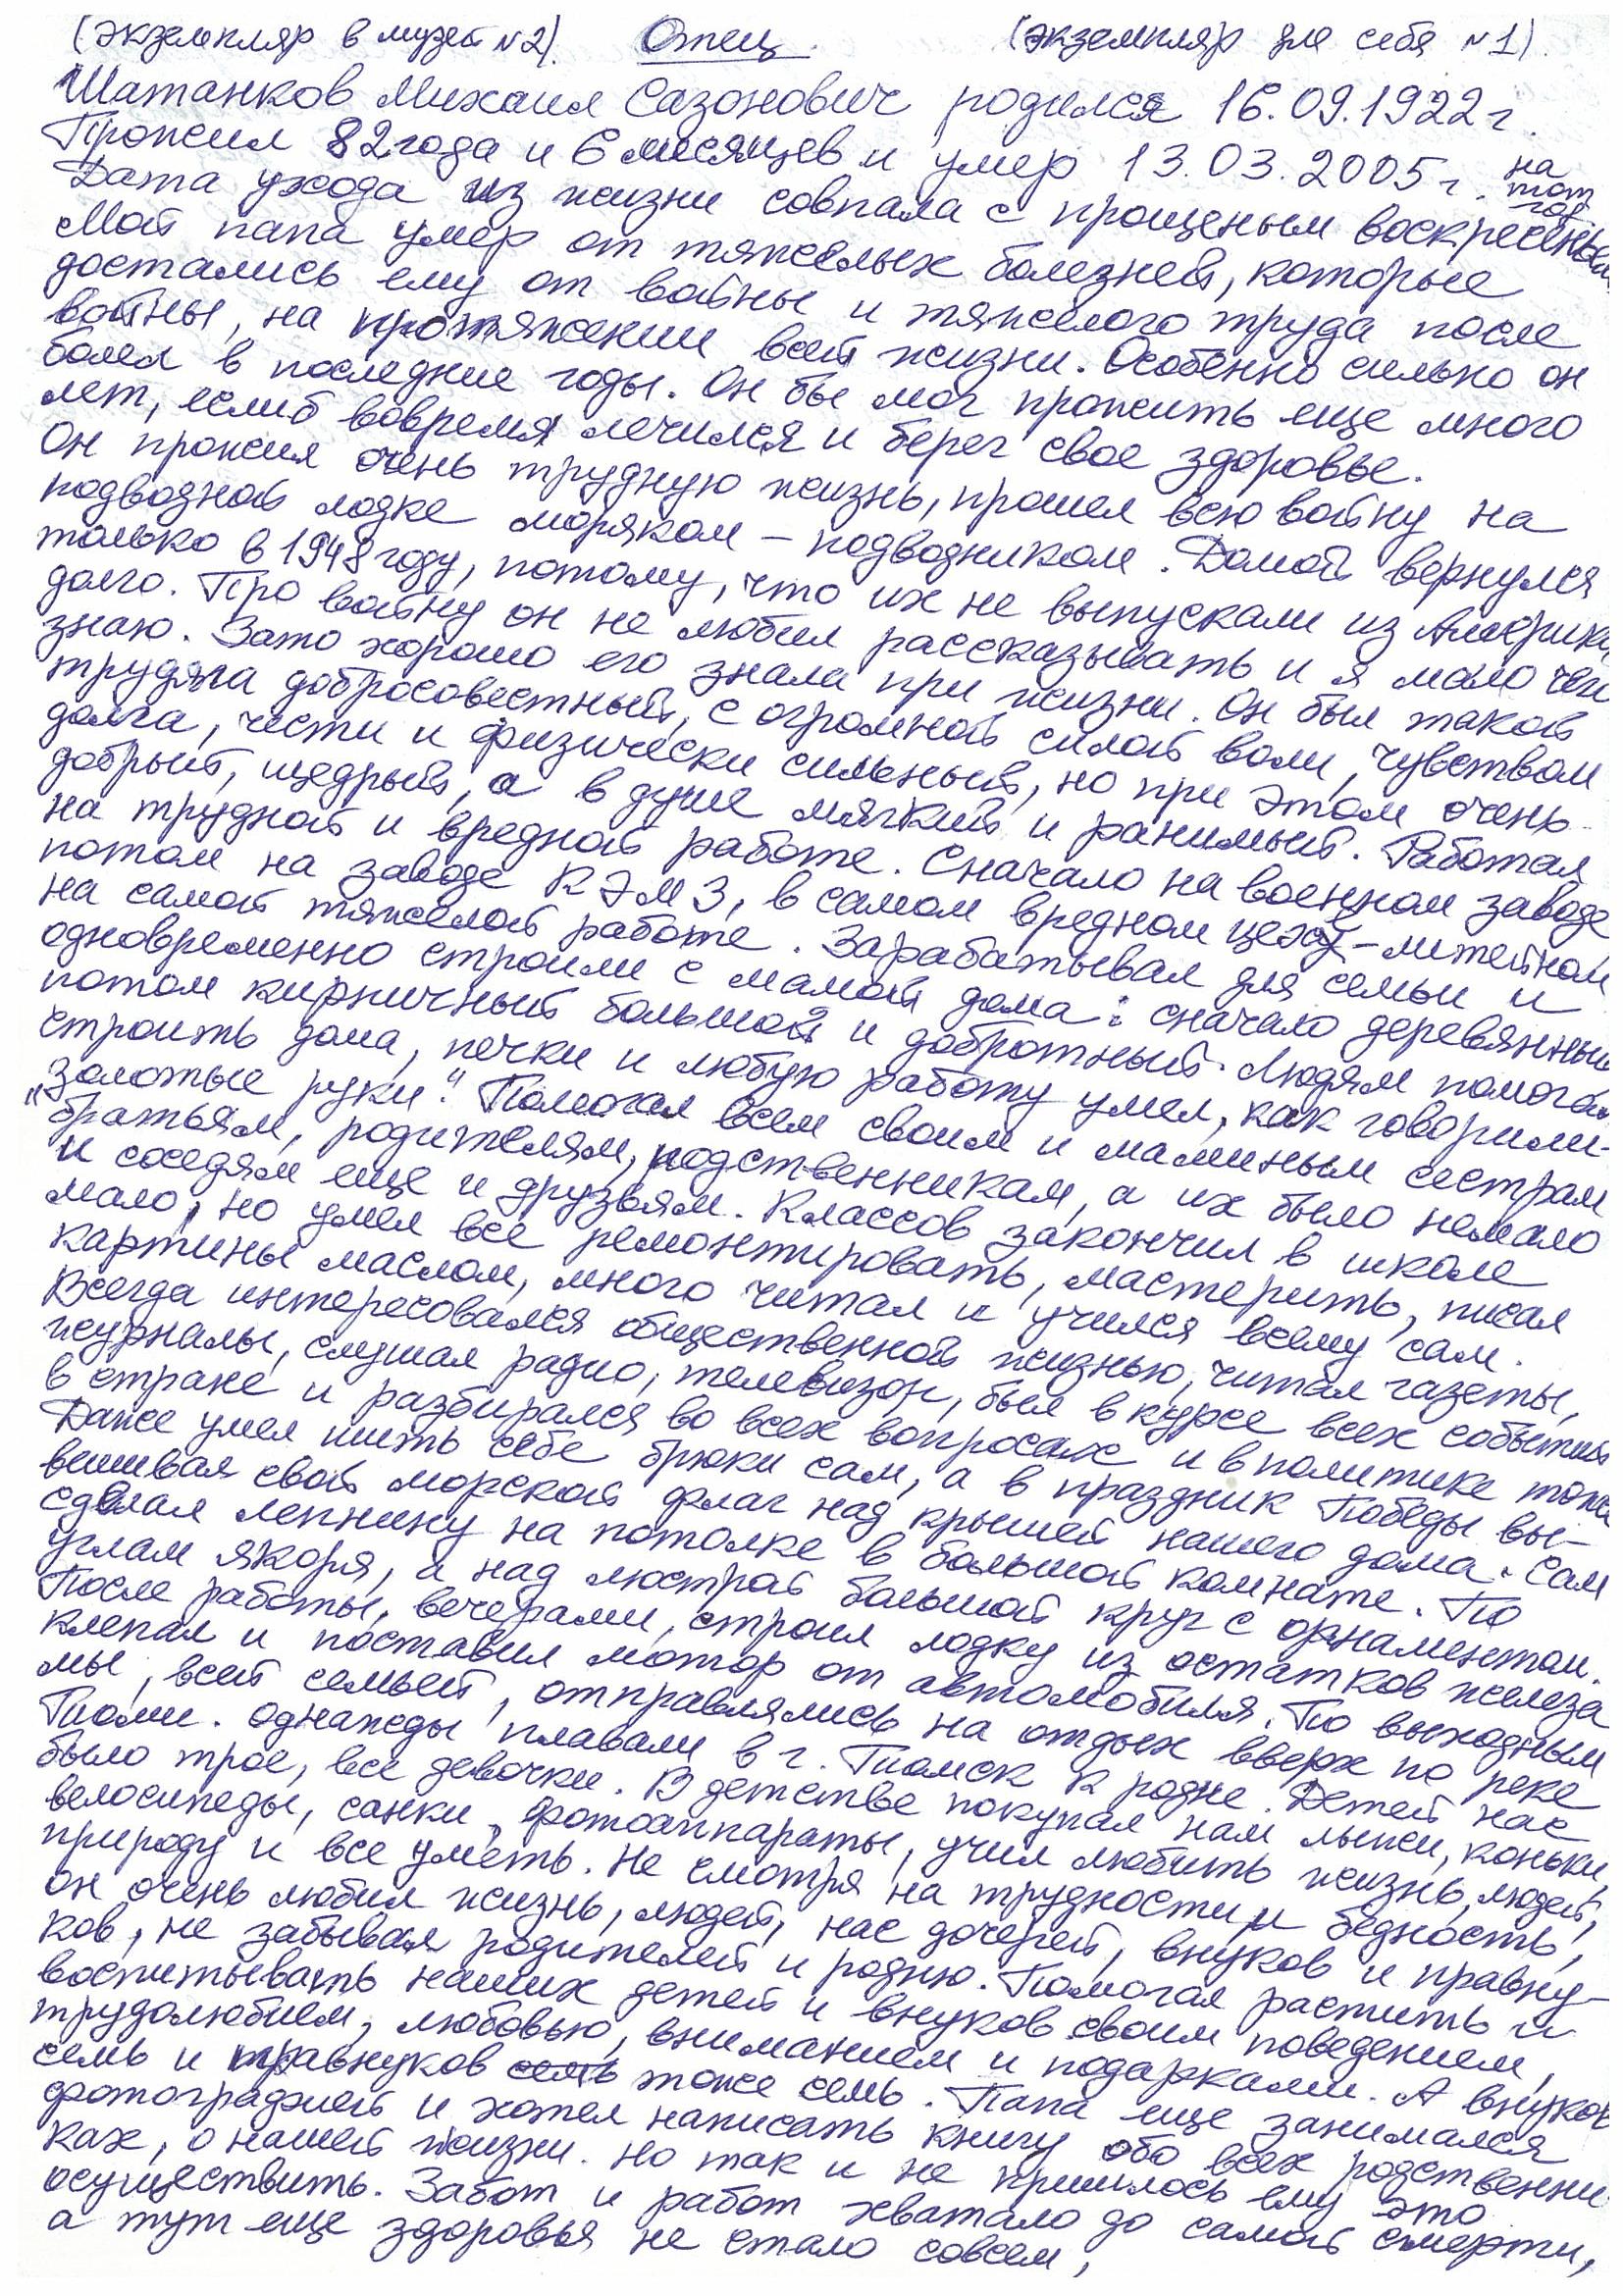 (экземпляр в музей №2). Отец. (экземпляр для себя №1).
Шатанков Михаил Сазонович родился 16.09.1922 г.
Прожил 82 года и 6 месяцев и умер 13.03.2005 г. на тот год
Дата ухода из жизни совпала с прощеным воскресеньем
Мой папа умер от тяжелых болезней, которые
достались ему от войны и тяжелого труда после
войны, на протяжении всей жизни. Особенно сильно он
болел в последние годы. Он бы мог прожить еще много
лет, еслиб вовремя лечился и берег свое здоровье.
Он прожил очень трудную жизнь, прошел всю войну на
подводной лодке моряком – подводником. Домой вернулся
только в 1948 году, потому, что их не выпускали из Америки
долго. Про войну он не любил рассказывать и я мало чего
знаю. Зато хорошо его знала при жизни. Он был такой
трудяга добросовестный, с огромной силой воли, чувством
долга, чести и физически сильный, но при этом очень
добрый, щедрый, а в душе мягкий и ранимый. Работал
на трудной и вредной работе. Сначало на военном заводе
потом на заводе КЭМЗ, в самом вредном цеху – литейном
на самой тяжелой работе. Зарабатывал для семьи и
одновременно строили с мамой дома: сначало деревянный
потом кирпичный большой и добротный. Людям помогал
строить дома, печки и любую работу умел, как говорили-
"золотые руки". Помогал всем своим и маминым сестрам
братьям, родителям, родственникам, а их было немало
и соседям еще и друзьям. Классов закончил в школе
мало, но умел все ремонтировать, мастерить, писал
картины маслом, много читал и учился всему сам.
Всегда интересовался общественной жизнью, читал газеты,
журналы, слушал радио, телевизор, был в курсе всех событий
в стране и разбирался во всех вопросах и в политике тоже
Даже умел шить себе брюки сам, а в праздник Победы вы-
вешивал свой морской флаг над крышей нашего дома. Сам
сделал лепнину на потолке в большой комнате. По
углам якоря, а над люстрой большой круг с орнаментом.
После работы, вечерами, строил лодку из остатков железа
клепал и поставил мотор от автомобиля. По выходным
мы, всей семьей, отправлялись на отдых вверх по реке
Томи. Однажды плавали в г. Томск к родне. Детей нас
было трое, все девочки. В детстве покупал нам лыжи, коньки,
велосипеды, санки, фотоаппараты, учил любить жизнь, людей,
природу и все уметь. Не смотря на трудности и бедность,
он очень любил жизнь, людей, нас дочерей, внуков и правну-
ков, не забывал родителей и родню. Помогал растить и
воспитывать наших детей и внуков своим поведением,
трудолюбием, любовью, вниманием и подарками. А внуков
семь и правнуков семь тоже семь. Папа еще занимался
фотографией и хотел написать книгу обо всех родственни-
ках, о нашей жизни. Но так и не пришлось ему это
осуществить. Забот и работ хватало до самой смерти,
а тут еще здоровья не стало совсем,